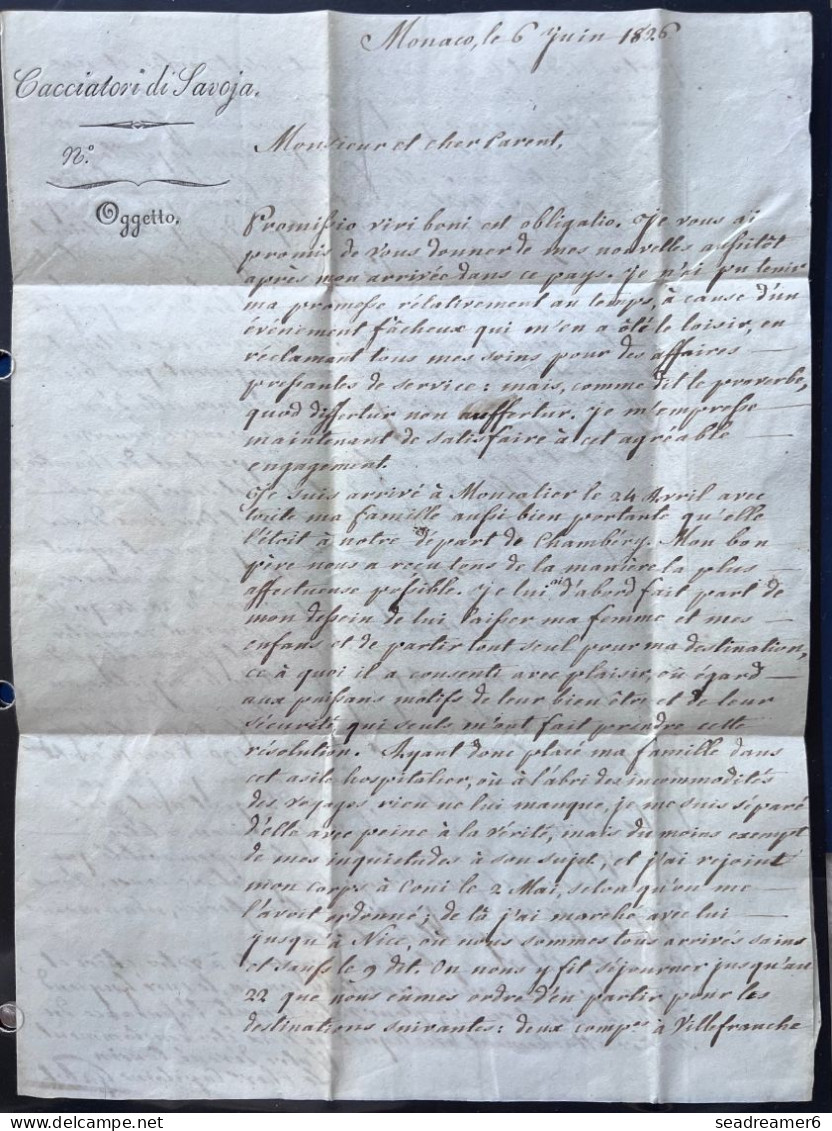 Monaco, le 6 Juin 1826
Cacciatori di Savoja.
N.º
Oggetto.
Monsieur et cher Parent,
Promissio viri boni est obligatio. Je vous ai
promis de vous donner de mes nouvelles aussitôt
après mon arrivée dans ce pays. Je n'ai pu tenir
ma promesse rélativement au temps, à cause d'un
évènement fâcheux qui m'en a ôté le loisir, en
réclamant tous mes soins pour des affaires —
pressantes de service: mais, comme dit le proverbe,
quod differtur non auffertur. Je m'empresse —
maintenant de satisfaire à cet agréable —
engagement.
Je suis arrivé à Moncalier le 24 Avril avec
toute ma famille aussi bien portante qu'elle
l'étoit à notre départ de Chambéry. Mon bon
père nous a reçu tous de la manière la plus —
affectueuse possible. Je lui ai d'abord fait part de
mon dessein de lui laisser ma femme et mes —
enfans et de partir tout seul pour ma destination,
ce à quoi il a consenti avec plaisir, eû égard —
aux puissans motifs de leur bien être et de leur
sécurité qui seuls m'ont fait prendre cette
résolution. Ayant donc placé ma famille dans
cet asile hospitalier, où à l'abri des incommodités
des voyages, rien ne lui manque, je me suis séparé
d'elle avec peine à la vérité, mais du moins exempt
de mes inquiétudes à son sujet, et j'ai rejoint
mon corps à Coni le 2 Mai, selon qu'on me —
l'avoit ordonné; de là j'ai marché avec lui —
jusqu'à Nice, où nous sommes tous arrivés sains
et saufs le 9 dit. On nous y fit séjourner jusqu'au
22 que nous eûmes ordre d'en partir pour les
destinations suivantes: deux comp.es à Villefranche
© seadreamer6
www.delcampe.net